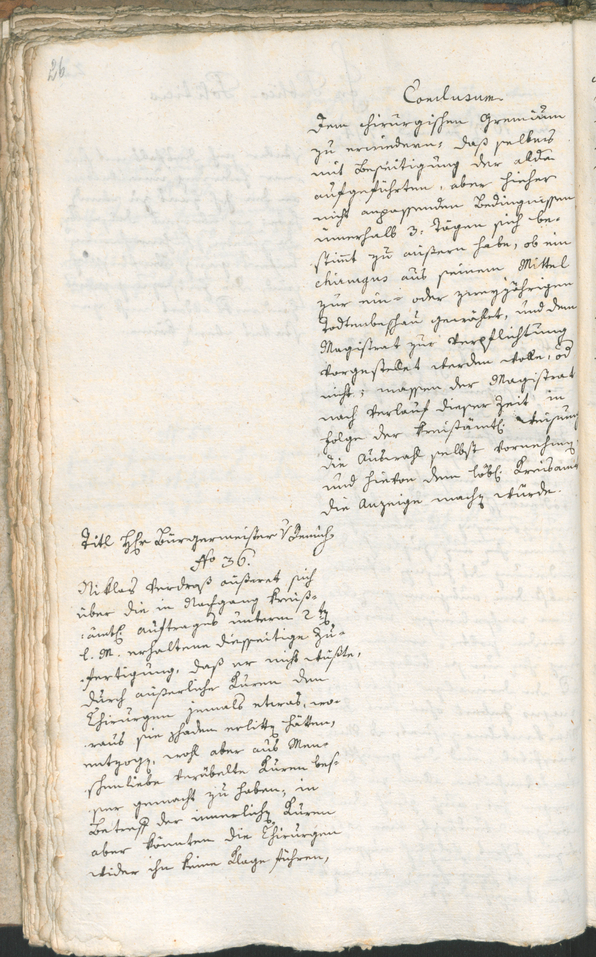 26
Conclusum.
Dem chirurgischen Gremium
zu erwiedern: daß selbes
mit Beseitigung der alda
aufgeführten, aber hieher
nicht anpassenden Bedingnissen
innerhalb 3: Tägen sich be-
stimt zu äußern habe, ob ein
chirurgus aus seinem Mittel
zur ein- oder zweyjährigen
Todtenbeschau gewählet, und dem
Magistrat zur Verpflichtung
vorgestellet werden wolle, od
nicht; massen der Magistrat
nach Verlauf dieser Zeit in
Folge der kreisämtl: Weisung
die Auswahl selbst vornehmen
und hievon dem löbl: Kreisamt
die Anzeige machen wurde.
Titl Hr Bürgermeister v
No 36.
Niklas Verdroß äußeret sich
über die in Nachgang kreis-
ämtl: Auftrages unterm 2ten
l. M. erhaltene diesseitige Zu-
fertigung, daß er nicht wüßte,
durch äußerliche Kuren den
Chirurgen jemals etwas, wo-
raus sie schaden erlitten hätten,
entzogen, wohl aber aus Men-
schenliebe verübelte Kuren bes-
ser gemacht zu haben; in
Betreff der innerlichen Kuren
aber könnten die Chirurgen
wider ihn keine Klage führen,